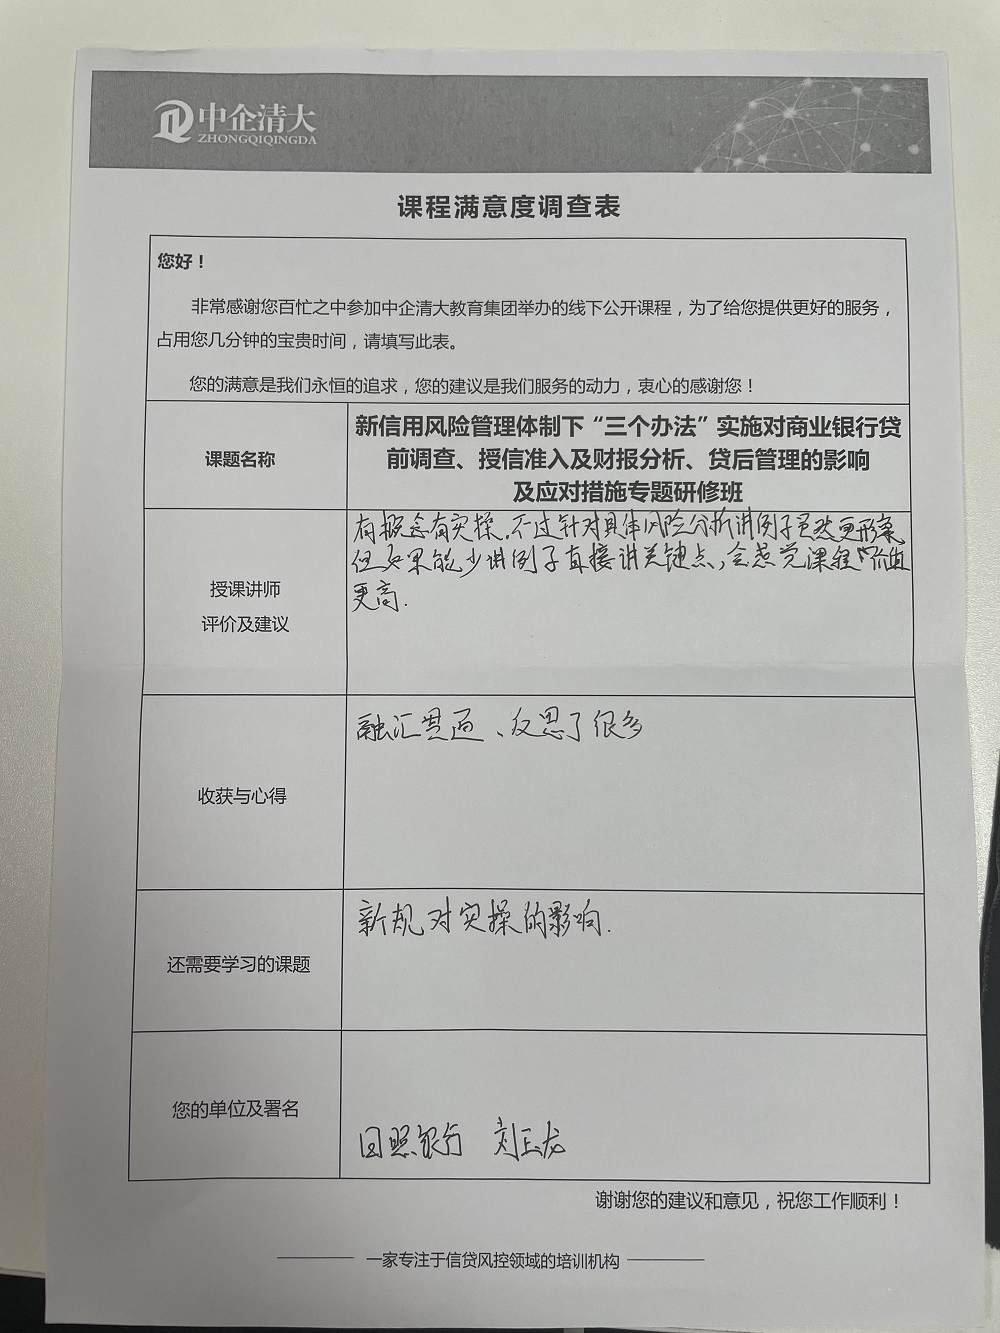 中企清大
ZHONGQIQINGDA
课程满意度调查表
您好！
非常感谢您百忙之中参加中企清大教育集团举办的线下公开课程，为了给您提供更好的服务，
占用您几分钟的宝贵时间，请填写此表。
您的满意是我们永恒的追求，您的建议是我们服务的动力，衷心的感谢您！
课题名称
新信用风险管理体制下“三个办法”实施对商业银行贷
前调查、授信准入及财报分析、贷后管理的影响
及应对措施专题研修班
授课讲师
评价及建议
有概念有实操，不过针对具体风险分析讲例子虽然更形象
但如果能少讲例子直接讲关键点，会感觉课程价值
更高.
收获与心得
融汇贯通、反思了很多
还需要学习的课题
新规对实操的影响.
您的单位及署名
日照银行 刘玉龙
谢谢您的建议和意见，祝您工作顺利！
一家专注于信贷风控领域的培训机构